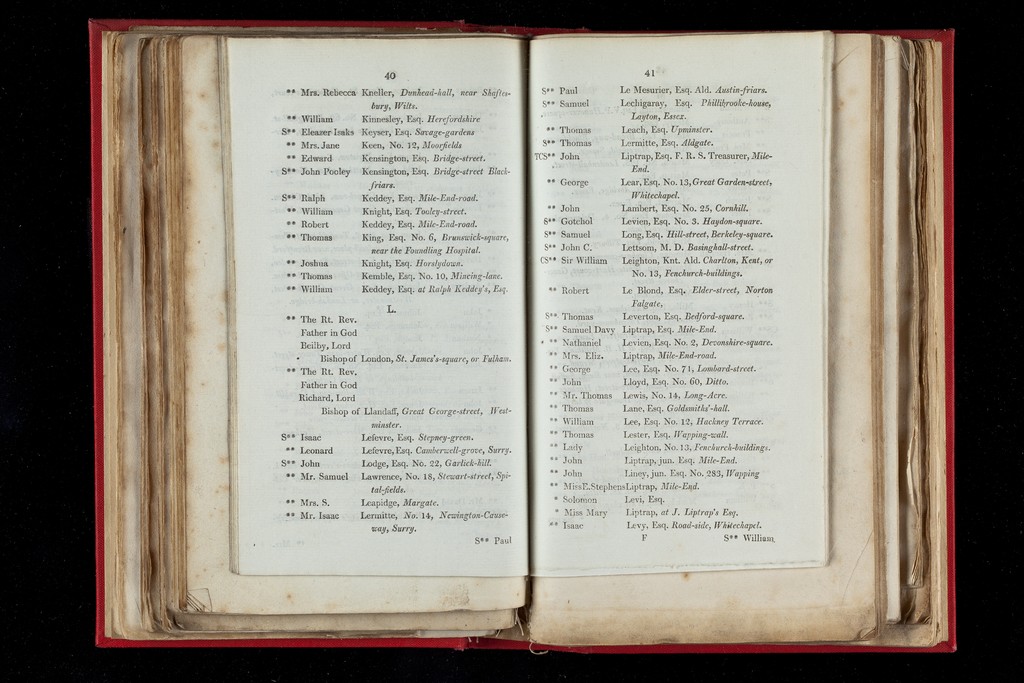 40
** Mrs. Rebecca Kneller, Dunhead-hall, near Shaftes-
bury, Wilts.
** William Kinnesley, Esq. Herefordshire
S** Eleazer Isaks Keyser, Esq. Savage-gardens
** Mrs. Jane Keen, No. 12, Moorfields
** Edward Kensington, Esq. Bridge-street.
S** John Pooley Kensington, Esq. Bridge-street Black-
friars.
S** Ralph Keddey, Esq. Mile-End-road.
** William Knight, Esq. Tooley-street.
** Robert Keddey, Esq. Mile-End-road.
** Thomas King, Esq. No. 6, Brunswick-square,
near the Foundling Hospital.
** Joshua Knight, Esq. Horslydown.
** Thomas Kemble, Esq. No. 10, Mincing-lane.
** William Keddey, Esq. at Ralph Keddey's, Esq.
L.
** The Rt. Rev.
Father in God
Beilby, Lord
Bishop of London, St. James's-square, or Fulham.
** The Rt. Rev.
Father in God
Richard, Lord
Bishop of Llandaff, Great George-street, West-
minster.
S** Isaac Lefevre, Esq. Stepney-green.
** Leonard Lefevre, Esq. Camberwell-grove, Surry.
S** John Lodge, Esq. No. 22, Garlick-hill.
** Mr. Samuel Lawrence, No. 18, Stewart-street, Spi-
tal-fields.
** Mrs. S. Leapidge, Margate.
** Mr. Isaac Lermitte, No. 14, Newington-Cause-
way, Surry.
S** Paul
41
S** Paul Le Mesurier, Esq. Ald. Austin-friars.
S** Samuel Lechigaray, Esq. Phillibrooke-house,
Layton, Essex.
** Thomas Leach, Esq. Upminster.
S** Thomas Lermitte, Esq. Aldgate.
TCS** John Liptrap, Esq. F. R. S. Treasurer, Mile-
End.
** George Lear, Esq. No. 13, Great Garden-street,
Whitechapel.
** John Lambert, Esq. No. 25, Cornhill.
S** Gotchol Levien, Esq. No. 3. Haydon-square.
S** Samuel Long, Esq. Hill-street, Berkeley-square.
S** John C. Lettsom, M. D. Basinghall-street.
CS** Sir William Leighton, Knt. Ald. Charlton, Kent, or
No. 13, Fenchurch-buildings.
** Robert Le Blond, Esq. Elder-street, Norton
Falgate,
S** Thomas Leverton, Esq. Bedford-square.
S** Samuel Davy Liptrap, Esq. Mile-End.
** Nathaniel Levien, Esq. No. 2, Devonshire-square.
** Mrs. Eliz. Liptrap, Mile-End-road.
** George Lee, Esq. No. 71, Lombard-street.
** John Lloyd, Esq. No. 60, Ditto.
** Mr. Thomas Lewis, No. 14, Long-Acre.
** Thomas Lane, Esq. Goldsmiths'-hall.
** William Lee, Esq. No. 12, Hackney Terrace.
** Thomas Lester, Esq. Wapping-wall.
** Lady Leighton, No. 13, Fenchurch-buildings.
** John Liptrap, jun. Esq. Mile-End.
** John Liney, jun. Esq. No. 283, Wapping
** Miss E. Stephens Liptrap, Mile-End.
* Solomon Levi, Esq.
* Miss Mary Liptrap, at J. Liptrap's Esq.
** Isaac Levy, Esq. Road-side, Whitechapel.
F S** William.